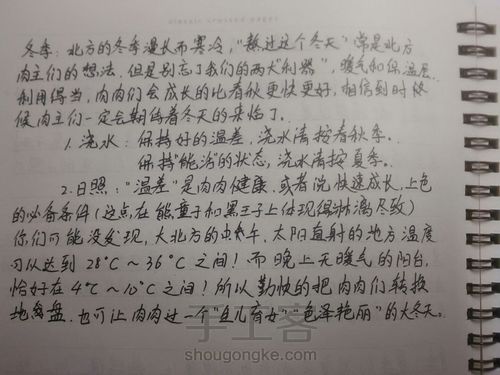 冬季：北方的冬季漫长而寒冷，"熬过这个冬天"常是北方
肉主们的想法，但是别忘了我们的两大"利器"，暖气和保温层。
利用得当，肉肉们会成长的比春秋更快更好，相信到时候
候肉主们一定会期待着冬天的来临了。
1.浇水：保持好的温差，浇水请按春秋季。
保持"能活"的状态，浇水请按夏季。
2.日照："温差"是肉肉健康，或者说快速成长，上色
的必备条件（这点在熊童子和黑王子上体现得淋漓尽致）
你们可能没发现，大北方的中午，太阳直射的地方温度
可以达到28℃～36℃之间！而晚上无暖气的阳台，
恰好在4℃～10℃之间！所以勤快的把肉肉们转换
地盘，也可让肉肉过一个"生儿育女""色泽艳丽"的大冬天。
手工客
shougongke.com